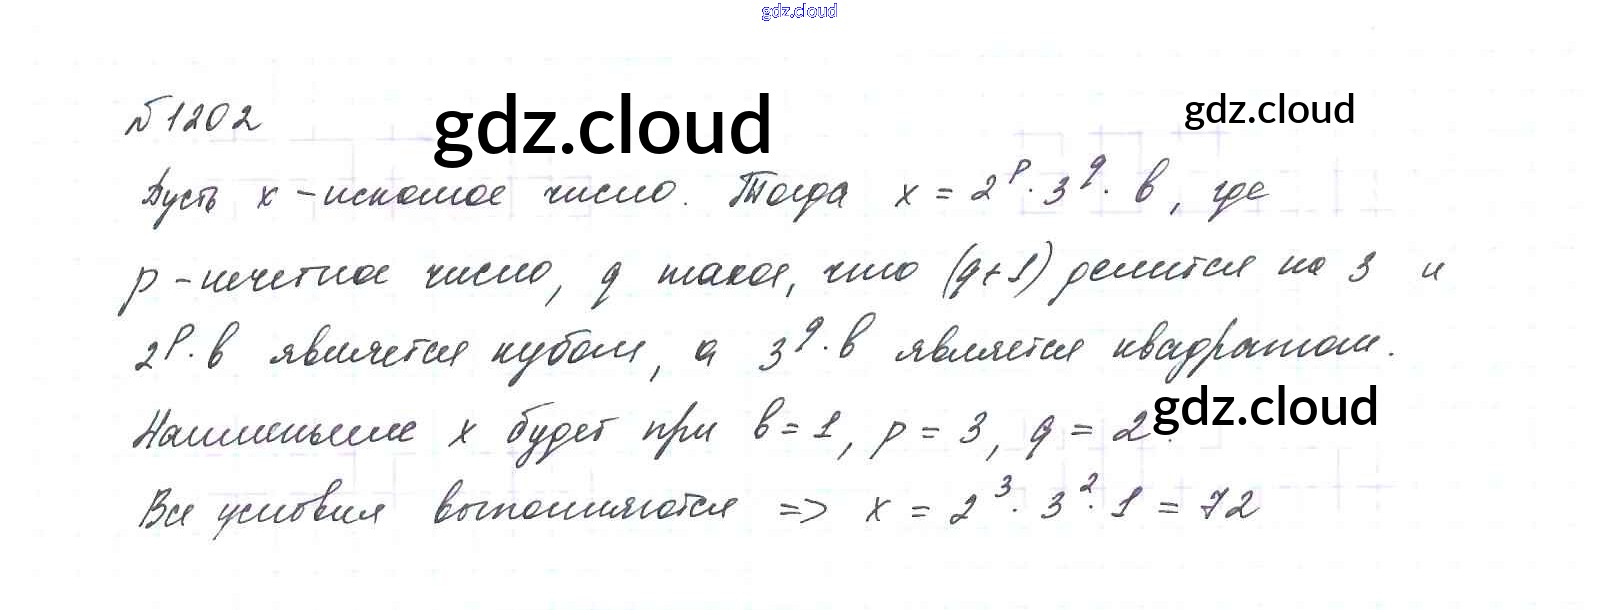 gdz.cloud
№1202
gdz.cloud
gdz.cloud
Пусть x – искомое число. Тогда x = 2^p · 3^q · b, где
p – нечетное число, q такое, что (q+1) делится на 3 и
2^p · b является кубом, а 3^q · b является квадратом.
gdz.cloud
Наименьшее x будет при b = 1, p = 3, q = 2.
Все условия выполняются => x = 2^3 · 3^2 · 1 = 72